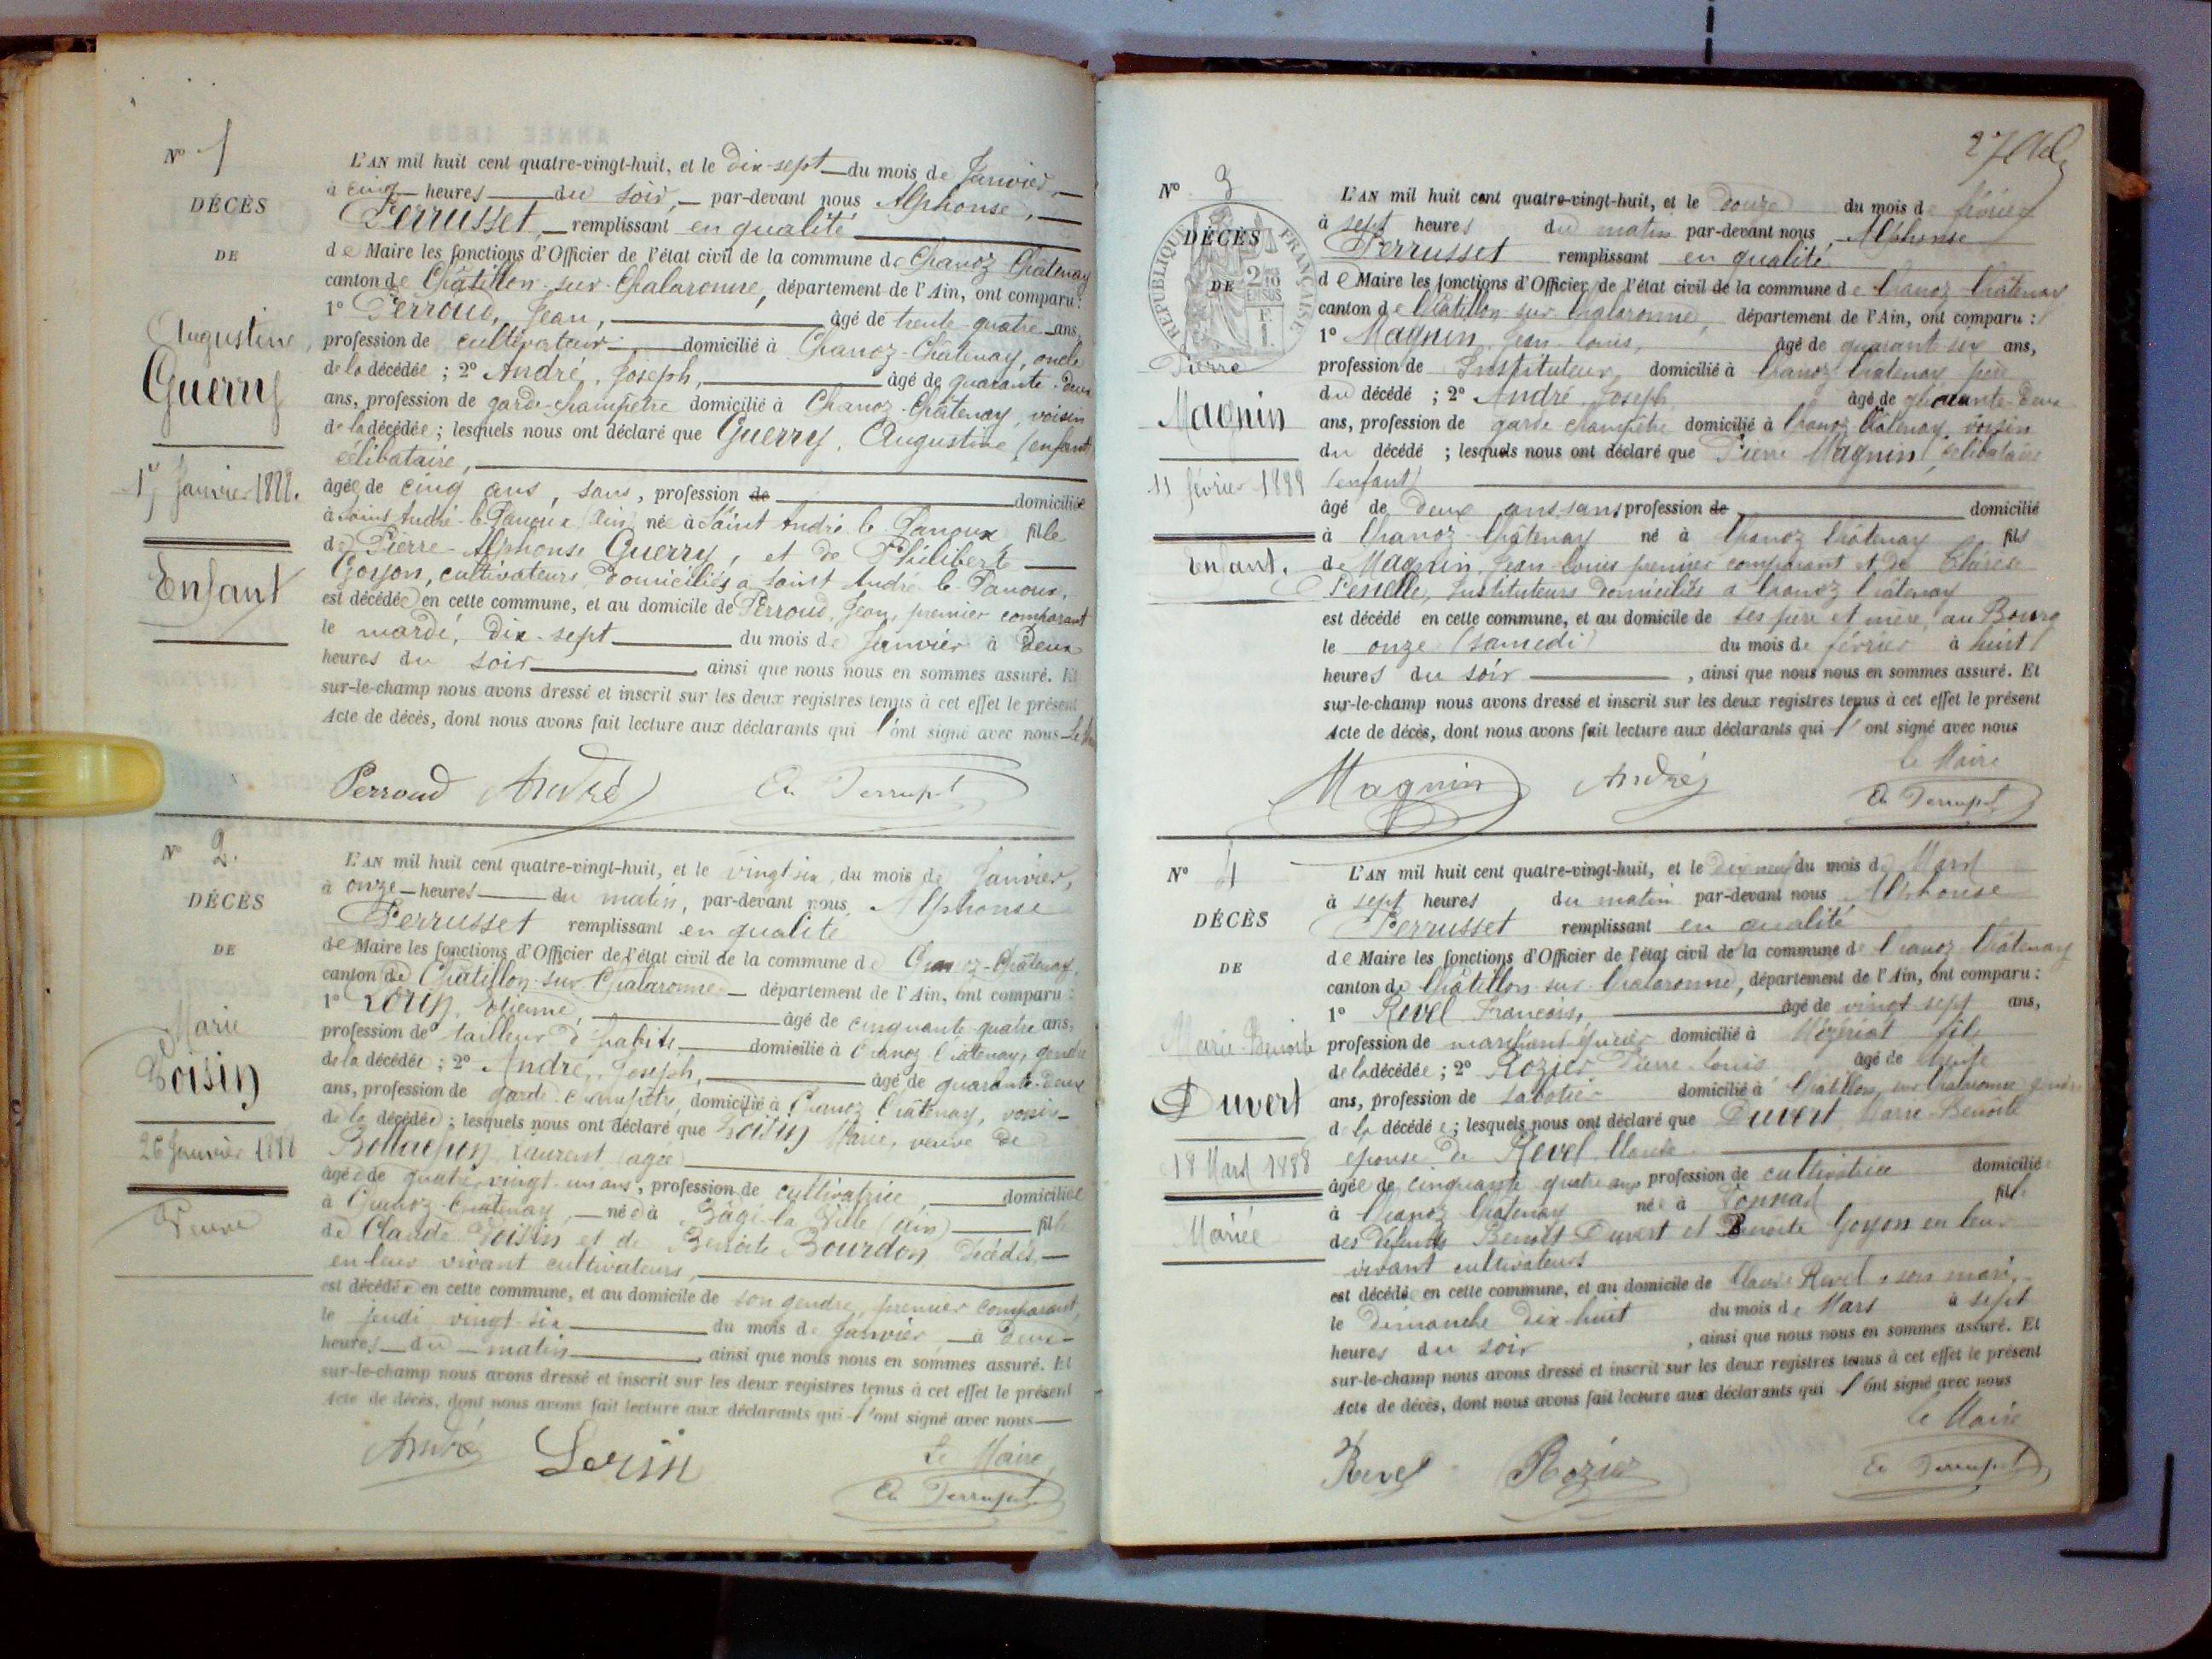 N° 1
DÉCÈS
DE
Augustine,
Guerry
17 Janvier 1888.
Enfant
L'AN mil huit cent quatre-vingt-huit, et le dix-sept du mois de Janvier,
à cinq heures du soir, par-devant nous Alphonse,
Perrusset, remplissant en qualité
de Maire les fonctions d'Officier de l'état civil de la commune de Chanoz Châtenay
canton de Châtillon-sur-Chalaronne, département de l'Ain, ont comparu :
1° Perroud, Jean, âgé de trente-quatre ans,
profession de cultivateur domicilié à Chanoz-Châtenay, oncle
de la décédée ; 2° André, Joseph, âgé de quarante-deux
ans, profession de garde-champêtre domicilié à Chanoz-Châtenay, voisin
de la décédée ; lesquels nous ont déclaré que Guerry, Augustine (enfant)
célibataire,
âgée de cinq ans, sans, profession de domiciliée
à Saint André-le-Panoux (Ain) né à Saint André le Panoux, fille
de Pierre-Alphonse Guerry, et de Philiberte
Goyon, cultivateurs domiciliés à Saint André-le-Panoux,
est décédée en cette commune, et au domicile de Perroud, Jean, premier comparant
le mardi, dix-sept du mois de Janvier à deux
heures du soir, ainsi que nous nous en sommes assuré. Et
sur-le-champ nous avons dressé et inscrit sur les deux registres tenus à cet effet le présent
Acte de décès, dont nous avons fait lecture aux déclarants qui l'ont signé avec nous
Perroud André Au Perrusset
N° 2.
DÉCÈS
DE
Marie
Voisin
26 Janvier 1888
Veuve
L'AN mil huit cent quatre-vingt-huit, et le vingt six, du mois de Janvier,
à onze heures du matin, par-devant nous Alphonse
Perrusset remplissant en qualité
de Maire les fonctions d'Officier de l'état civil de la commune de Chanoz-Châtenay,
canton de Châtillon-sur-Chalaronne département de l'Ain, ont comparu :
1° Etienne, âgé de cinquante-quatre ans,
profession de tailleur d'habits, domicilié à Chanoz Châtenay, gendre
de la décédée ; 2° André, Joseph, âgé de quarante-deux
ans, profession de garde-champêtre, domicilié à Chanoz Châtenay, voisin
de la décédée ; lesquels nous ont déclaré que Voisin Marie, veuve de
Laurent (agée)
âgée de quatre-vingt-un ans, profession de cultivatrice domiciliée
à Chanoz-Châtenay, née à Bâgé-la-Ville (Ain) fille
de Claude Voisin et de Benoite Bourdon, décédés,
en leur vivant cultivateurs,
est décédée en cette commune, et au domicile de son gendre, premier comparant,
le jeudi vingt-six du mois de Janvier à deux
heures du matin, ainsi que nous nous en sommes assuré. Et
sur-le-champ nous avons dressé et inscrit sur les deux registres tenus à cet effet le présent
Acte de décès, dont nous avons fait lecture aux déclarants qui l'ont signé avec nous
André Lorin Le Maire,
Au Perrusset
N° 3
RÉPUBLIQUE FRANÇAISE
DÉCÈS
DE
Pierre
Magnin
11 février 1888
Enfant,
L'AN mil huit cent quatre-vingt-huit, et le douze du mois de février
à sept heures du matin par-devant nous, Alphonse
Perrusset remplissant en qualité
de Maire les fonctions d'Officier de l'état civil de la commune de Chanoz-Châtenay
canton de Châtillon sur Chalaronne, département de l'Ain, ont comparu :
1° Magnin, Jean-Louis, âgé de quarant six ans,
profession de Instituteur, domicilié à Chanoz Châtenay père
du décédé ; 2° André Joseph âgé de quarante-deux
ans, profession de garde champêtre domicilié à Chanoz Châtenay, voisin
du décédé ; lesquels nous ont déclaré que Pierre Magnin, célibataire
(enfant)
âgé de deux ans, sans profession de domicilié
à Chanoz-Châtenay né à Chanoz Châtenay fils
de Magnin, Jean-Louis premier comparant et de
Instituteurs domiciliés à Chanoz Châtenay
est décédé en cette commune, et au domicile de ses père et mère, au Bourg
le onze (samedi) du mois de février à huit
heures du soir, ainsi que nous nous en sommes assuré. Et
sur-le-champ nous avons dressé et inscrit sur les deux registres tenus à cet effet le présent
Acte de décès, dont nous avons fait lecture aux déclarants qui l'ont signé avec nous
le Maire
Magnin André Au Perrusset
N° 4
DÉCÈS
DE
Marie-Benoite
Duvert
18 Mars 1888
Mariée
L'AN mil huit cent quatre-vingt-huit, et le dix neuf du mois de Mars
à sept heures du matin par-devant nous Alphonse
Perrusset remplissant en qualité
de Maire les fonctions d'Officier de l'état civil de la commune de Chanoz Châtenay
canton de Châtillon sur Chalaronne, département de l'Ain, ont comparu :
1° Revel François, âgé de vingt-sept ans,
profession de marchand-épicier domicilié à Mézériat fils
de la décédée ; 2° Rozier Pierre Louis âgé de trente
ans, profession de sabotier domicilié à Châtillon sur Chalaronne gendre
de la décédée ; lesquels nous ont déclaré que Duvert Marie-Benoîte
épouse de Revel Claude
âgée de cinquante quatre ans profession de cultivatrice domiciliée
à Chanoz Châtenay née à Vonnas fille
des défunts Benoît Duvert et Benoite Goyon en leur
vivant cultivateurs
est décédée en cette commune, et au domicile de Claude Revel, son mari,
le dimanche dix-huit du mois de Mars à sept
heures du soir, ainsi que nous nous en sommes assuré. Et
sur-le-champ nous avons dressé et inscrit sur les deux registres tenus à cet effet le présent
Acte de décès, dont nous avons fait lecture aux déclarants qui l'ont signé avec nous
le Maire
Revel Rozier Au Perrusset